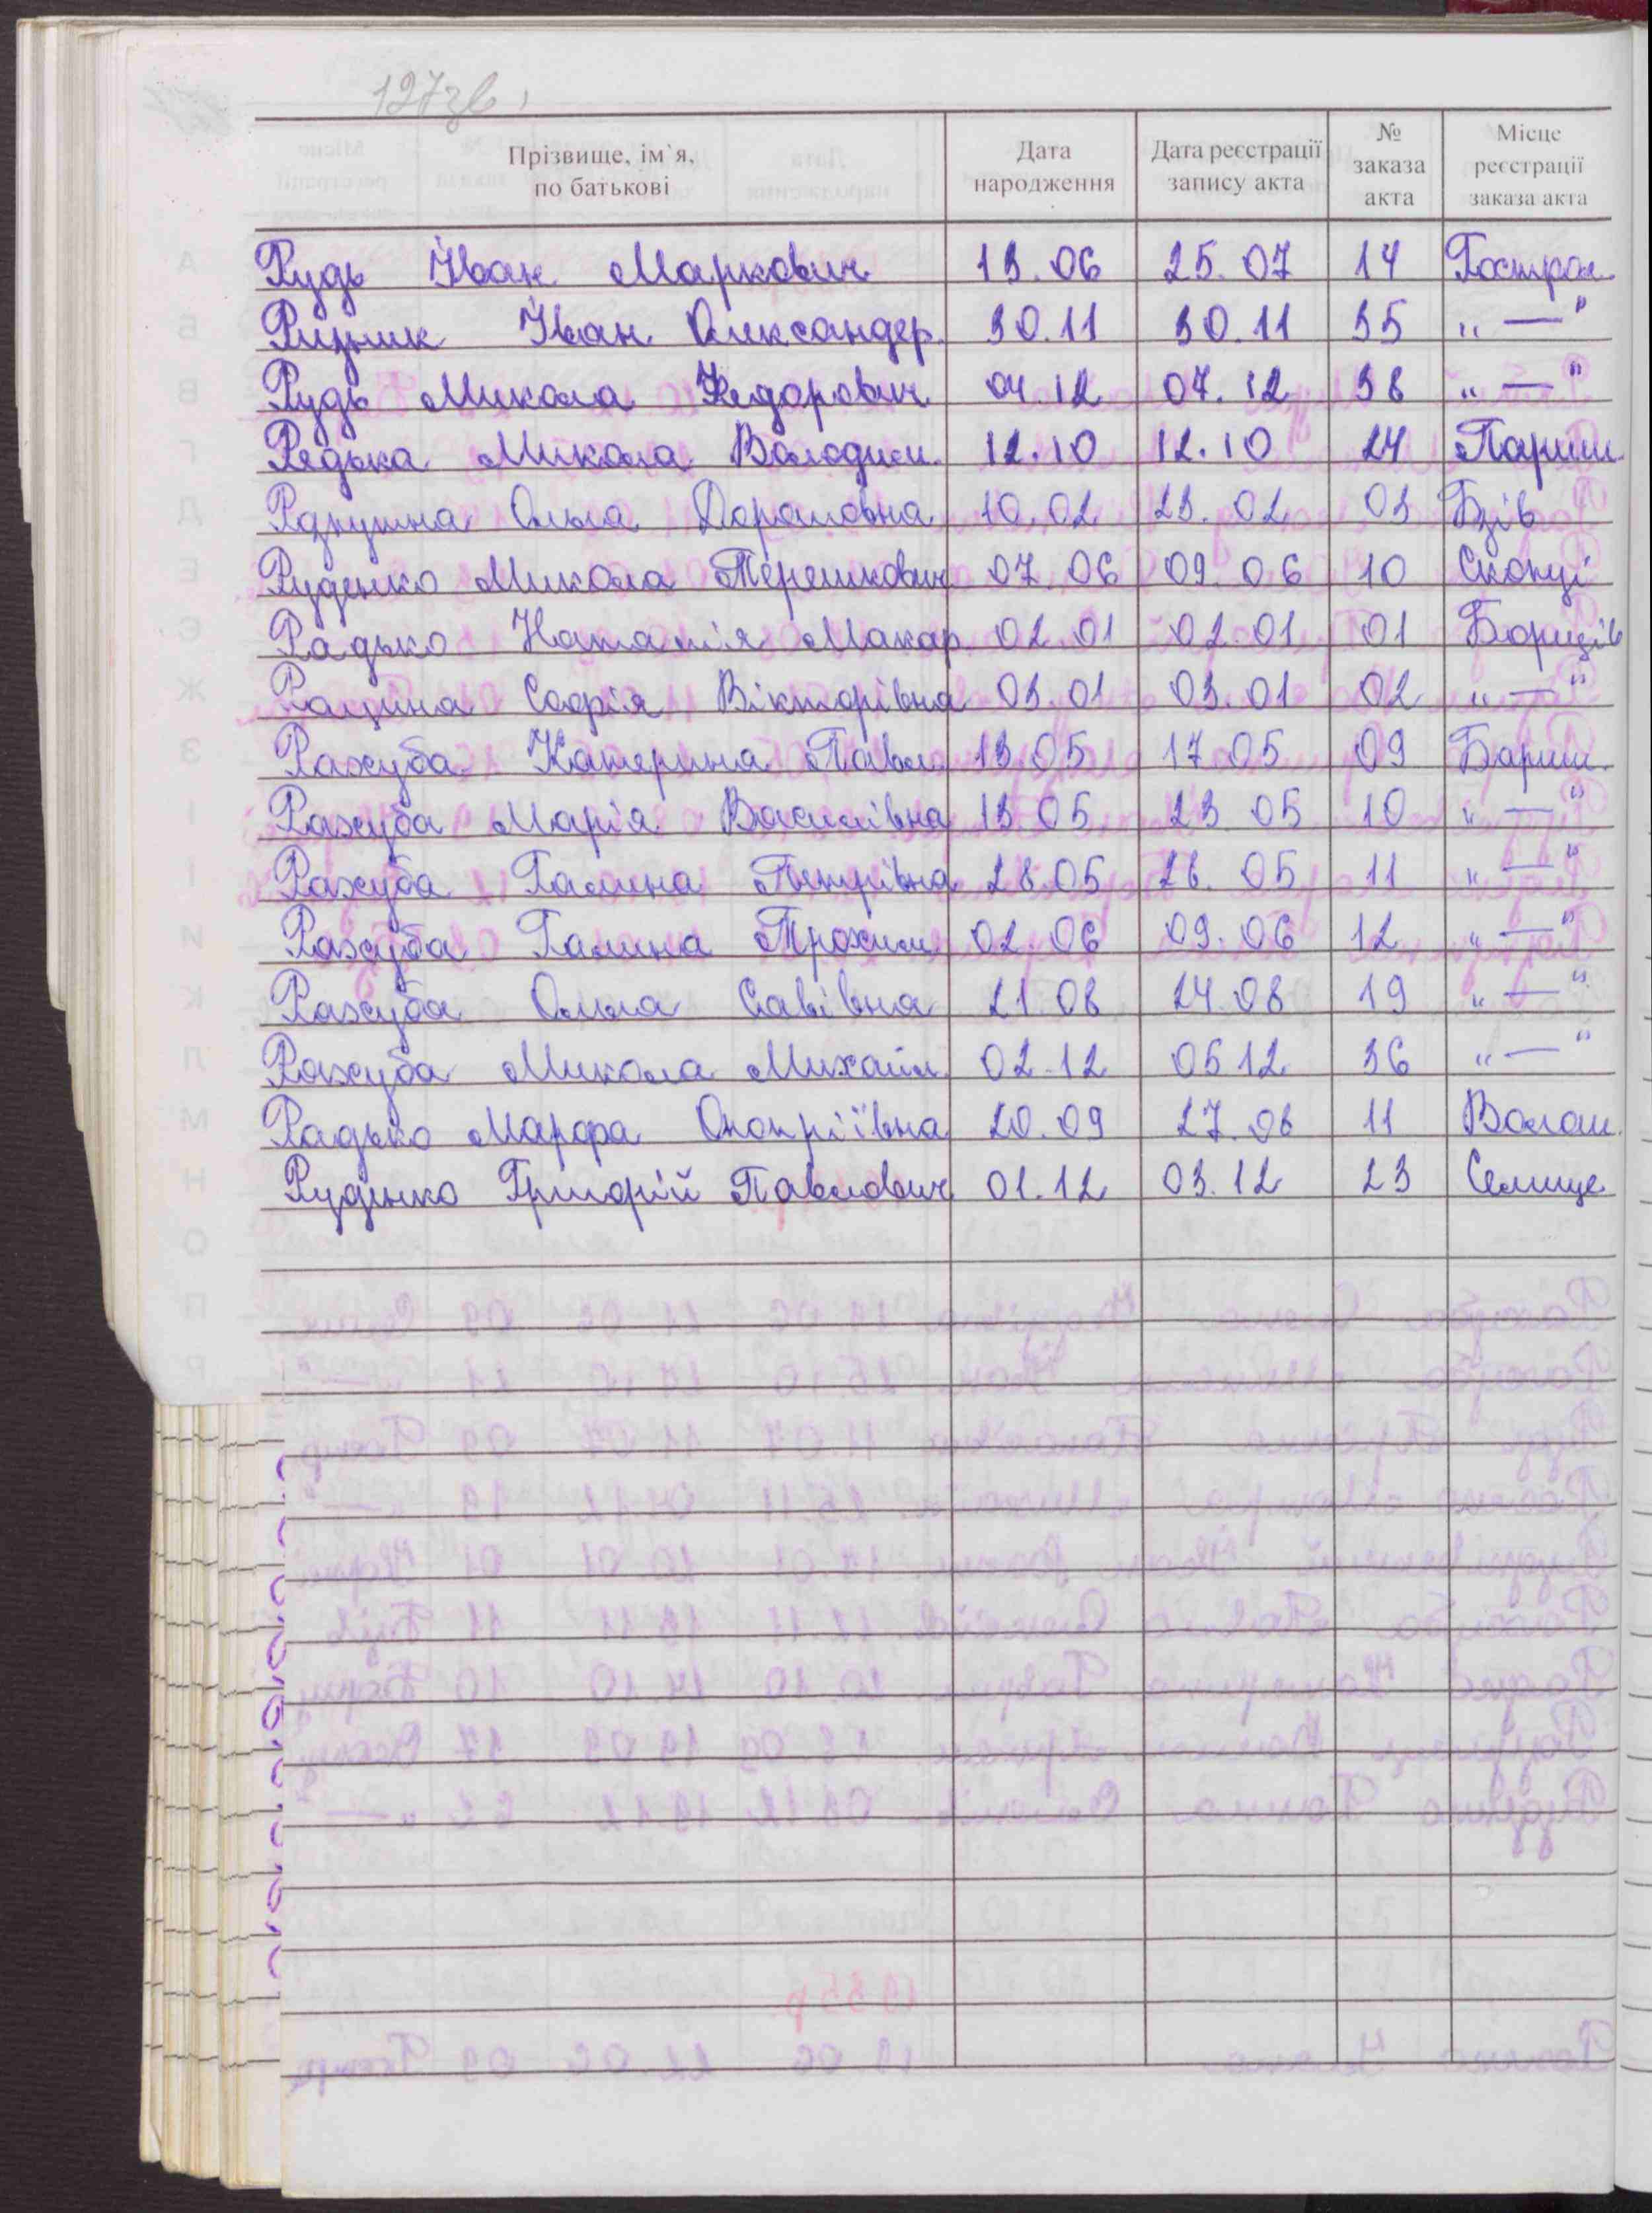 127зв,
Прізвище, ім`я, по батькові | Дата народження | Дата реєстрації запису акта | № заказа акта | Місце реєстрації заказа акта
Рудь Іван Маркович 13.06 25.07 14 Гострол.
Іван Олександер. 30.11 30.11 35 " — "
Рудь Микола Федорович 04.12 07.12 38 " — "
Редька Микола Володим. 12.10 12.10 24 Париш.
Ольга 10.02 23.02 03 Бзів
Руденко Микола Терешкович 07.06 09.06 10 Скопці
Радько Наталія Макар. 02.01 02.01 01 Борщів
Софія Вікторівна 03.01 03.01 02 " — "
Рахуба Катерина Павл. 13.05 17.05 09 Бариш.
Рахуба Марія Василівна 13.05 23.05 10 " — "
Рахуба Галина Петрівна 28.05 28.05 11 " — "
Рахуба Галина Трохим. 02.06 09.06 12 " — "
Рахуба Ольга Савівна 21.08 24.08 19 " — "
Рахуба Микола Михайл. 02.12 05.12 36 " — "
Радько Марфа Онопріївна 20.09 27.08 11 Волош.
Руденко Григорій Павлович 01.12 03.12 23 Селище